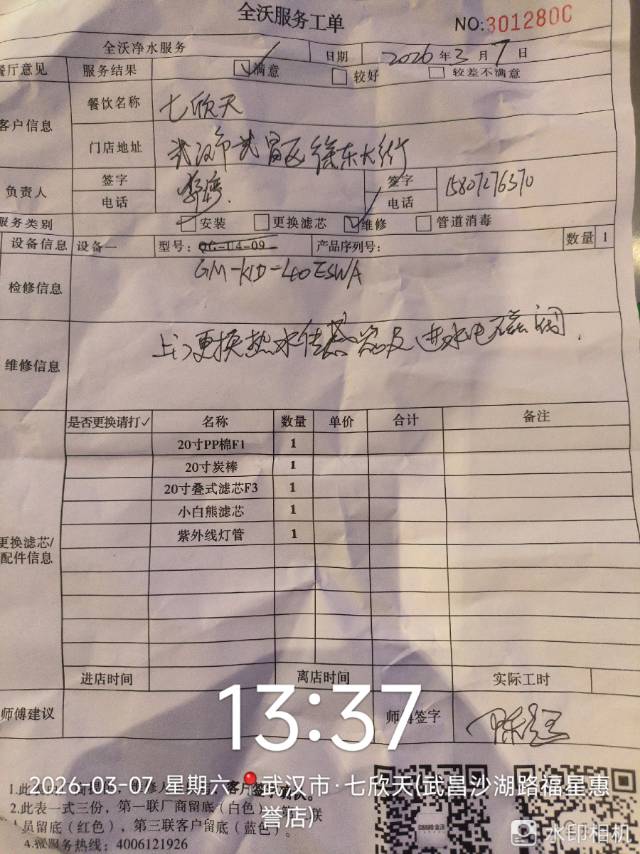 全沃服务工单
NO:3012800
全沃净水服务 日期 2026年3月7日
餐厅意见 服务结果 满意 较好 较差不满意
客户信息 餐饮名称 七欣天
门店地址 武汉市武昌区徐东大街
负责人 签字 签字
电话 电话 15807276370
服务类别 安装 更换滤芯 维修 管道消毒
设备信息 设备一 型号: QG-U4-09 产品序列号: 数量 1
检修信息 GM-KD-40ESWA
维修信息 上门更换热水传感器及进水电磁阀.
是否更换请打✓ 名称 数量 单价 合计 备注
20寸PP棉F1 1
20寸炭棒 1
20寸叠式滤芯F3 1
小白熊滤芯 1
紫外线灯管 1
更换滤芯/
配件信息
进店时间 离店时间 实际工时
师傅建议 师傅签字
13:37
2026-03-07 星期六 武汉市·七欣天(武昌沙湖路福星惠
誉店)
2.此表一式三份，第一联厂商留底（白色）
员留底（红色），第三联客户留底（蓝色）。
服务热线：4006121926
水印相机